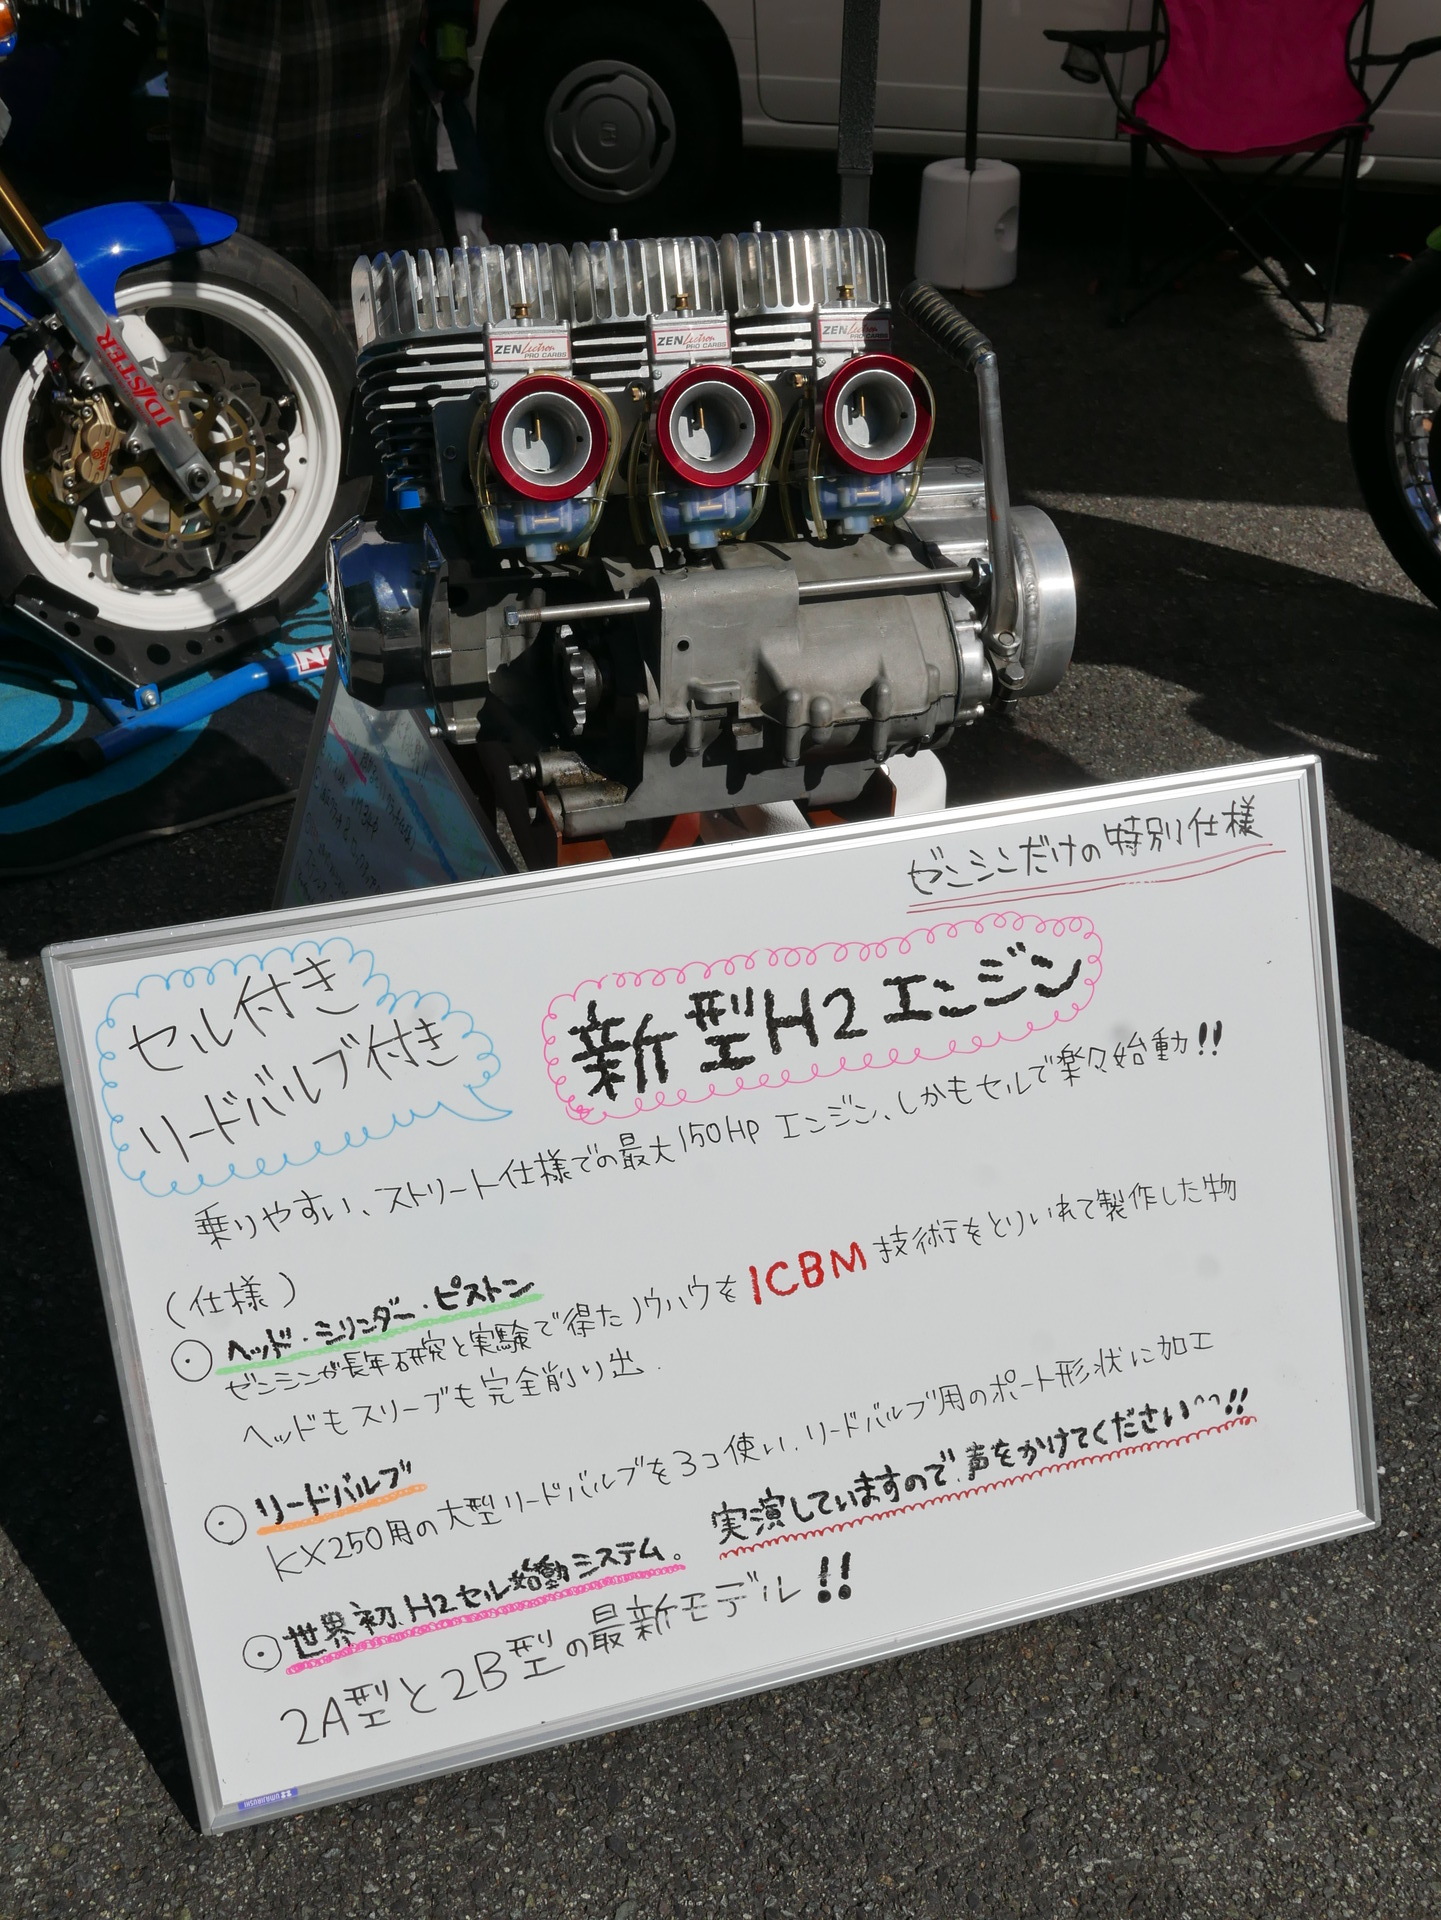 IDLSTER
ZENLectron
PRO CARBS
ZENLectron
PRO CARBS
ZENLectron
PRO CARBS
ゼンシンだけの特別仕様
セル付き
リードバルブ付き
新型H2エンジン
乗りやすい、ストリート仕様での最大150HPエンジン、しかもセルで楽々始動!!
(仕様)
⊙ヘッド・シリンダー・ピストン
ゼンシンが長年研究と実験で得たノウハウをICBM技術をとりいれて製作した物
ヘッドもスリーブも完全削り出
⊙リードバルブ
KX250用の大型リードバルブを3コ使い、リードバルブ用のポート形状に加工
⊙世界初、H2セル始動システム。 実演していますので、声をかけてください^^!!
2A型と2B型の最新モデル!!
UMAJIRUSHI